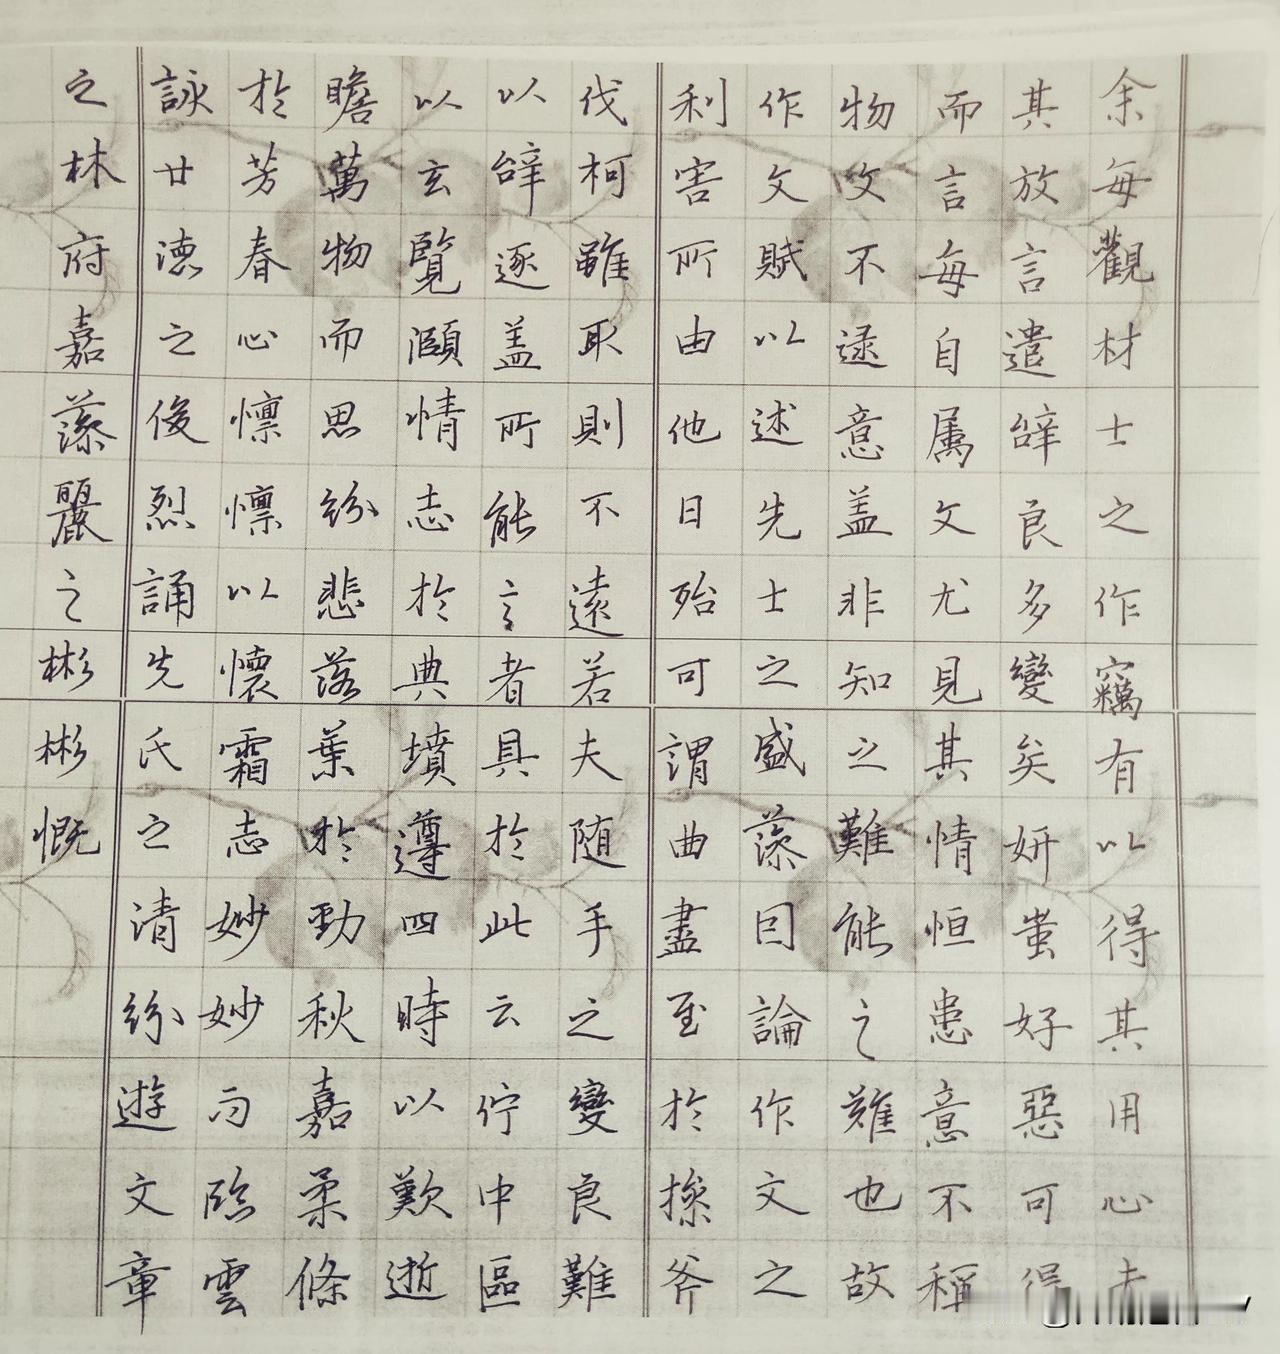 余每觀材士之作竊有以得其用心夫
其放言遣辝良多變矣妍蚩好惡可得
而言每自属文尤見其情恒患意不稱
物文不逮意盖非知之難能之難也故
作文賦以述先士之盛藻因論作文之
利害所由他日殆可謂曲盡至於操斧
伐柯雖取則不遠若夫随手之變良難
以辝逐盖所能言者具於此云佇中區
以玄覽頤情志於典墳遵四時以歎逝
瞻萬物而思紛悲落葉於勁秋嘉柔條
於芳春心懍懍以懷霜志妙妙而臨雲
詠廿德之俊烈誦先氏之清紛遊文章
之林府嘉藻麗之彬彬慨